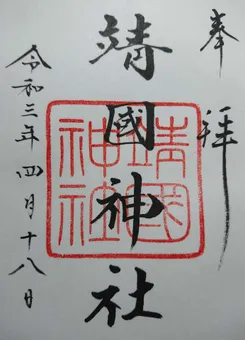 奉拝
靖國神社
靖國
神社
令和三年四月十八日